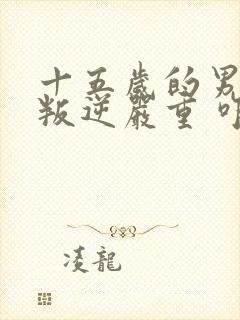 十五歲的男
叛逆嚴重
凌龍